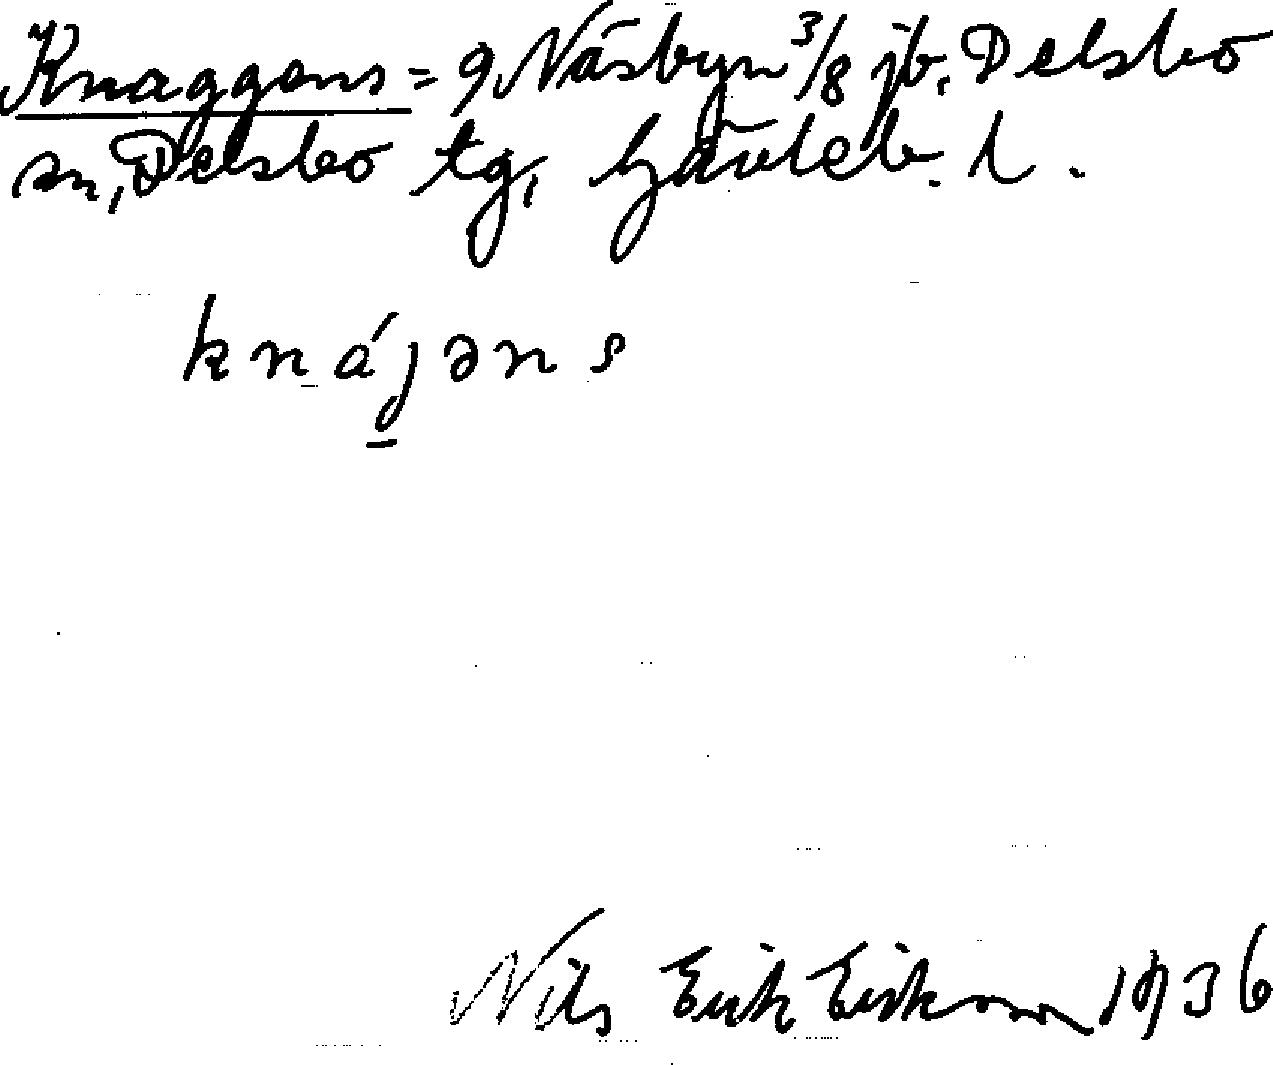 Knaggens = 9 Näsbyn 3/8 jb. Delsbo
sn, Delsbo tg, Gävleb. l.
knájəns
Nils Erik Eriksson 1936